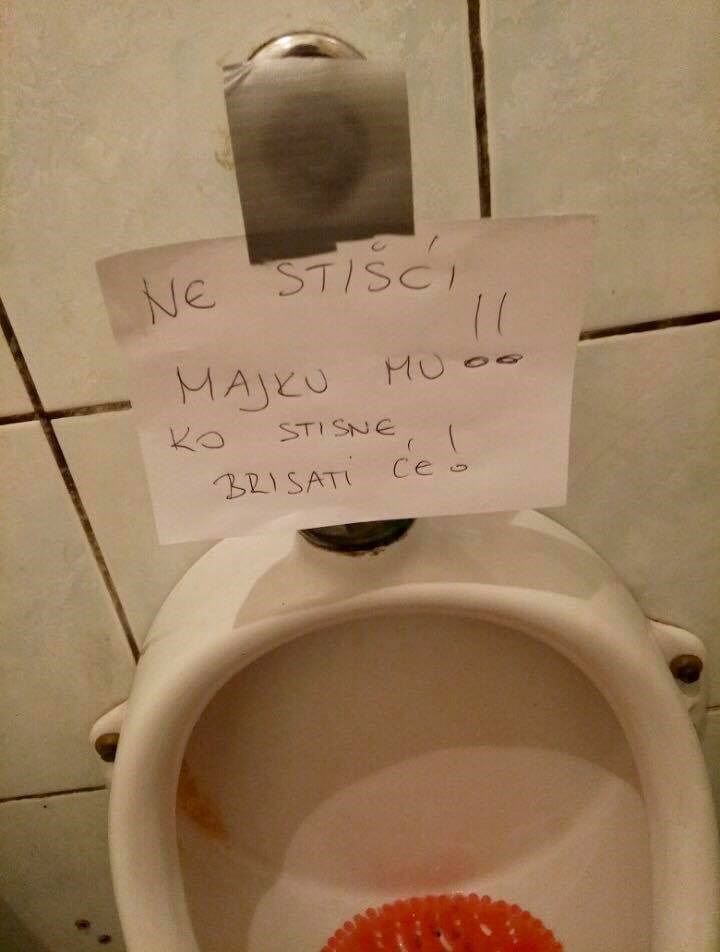 NE STIŠĆI
MAJKU MU !!
KO STISNE,
BRISATI ĆE!